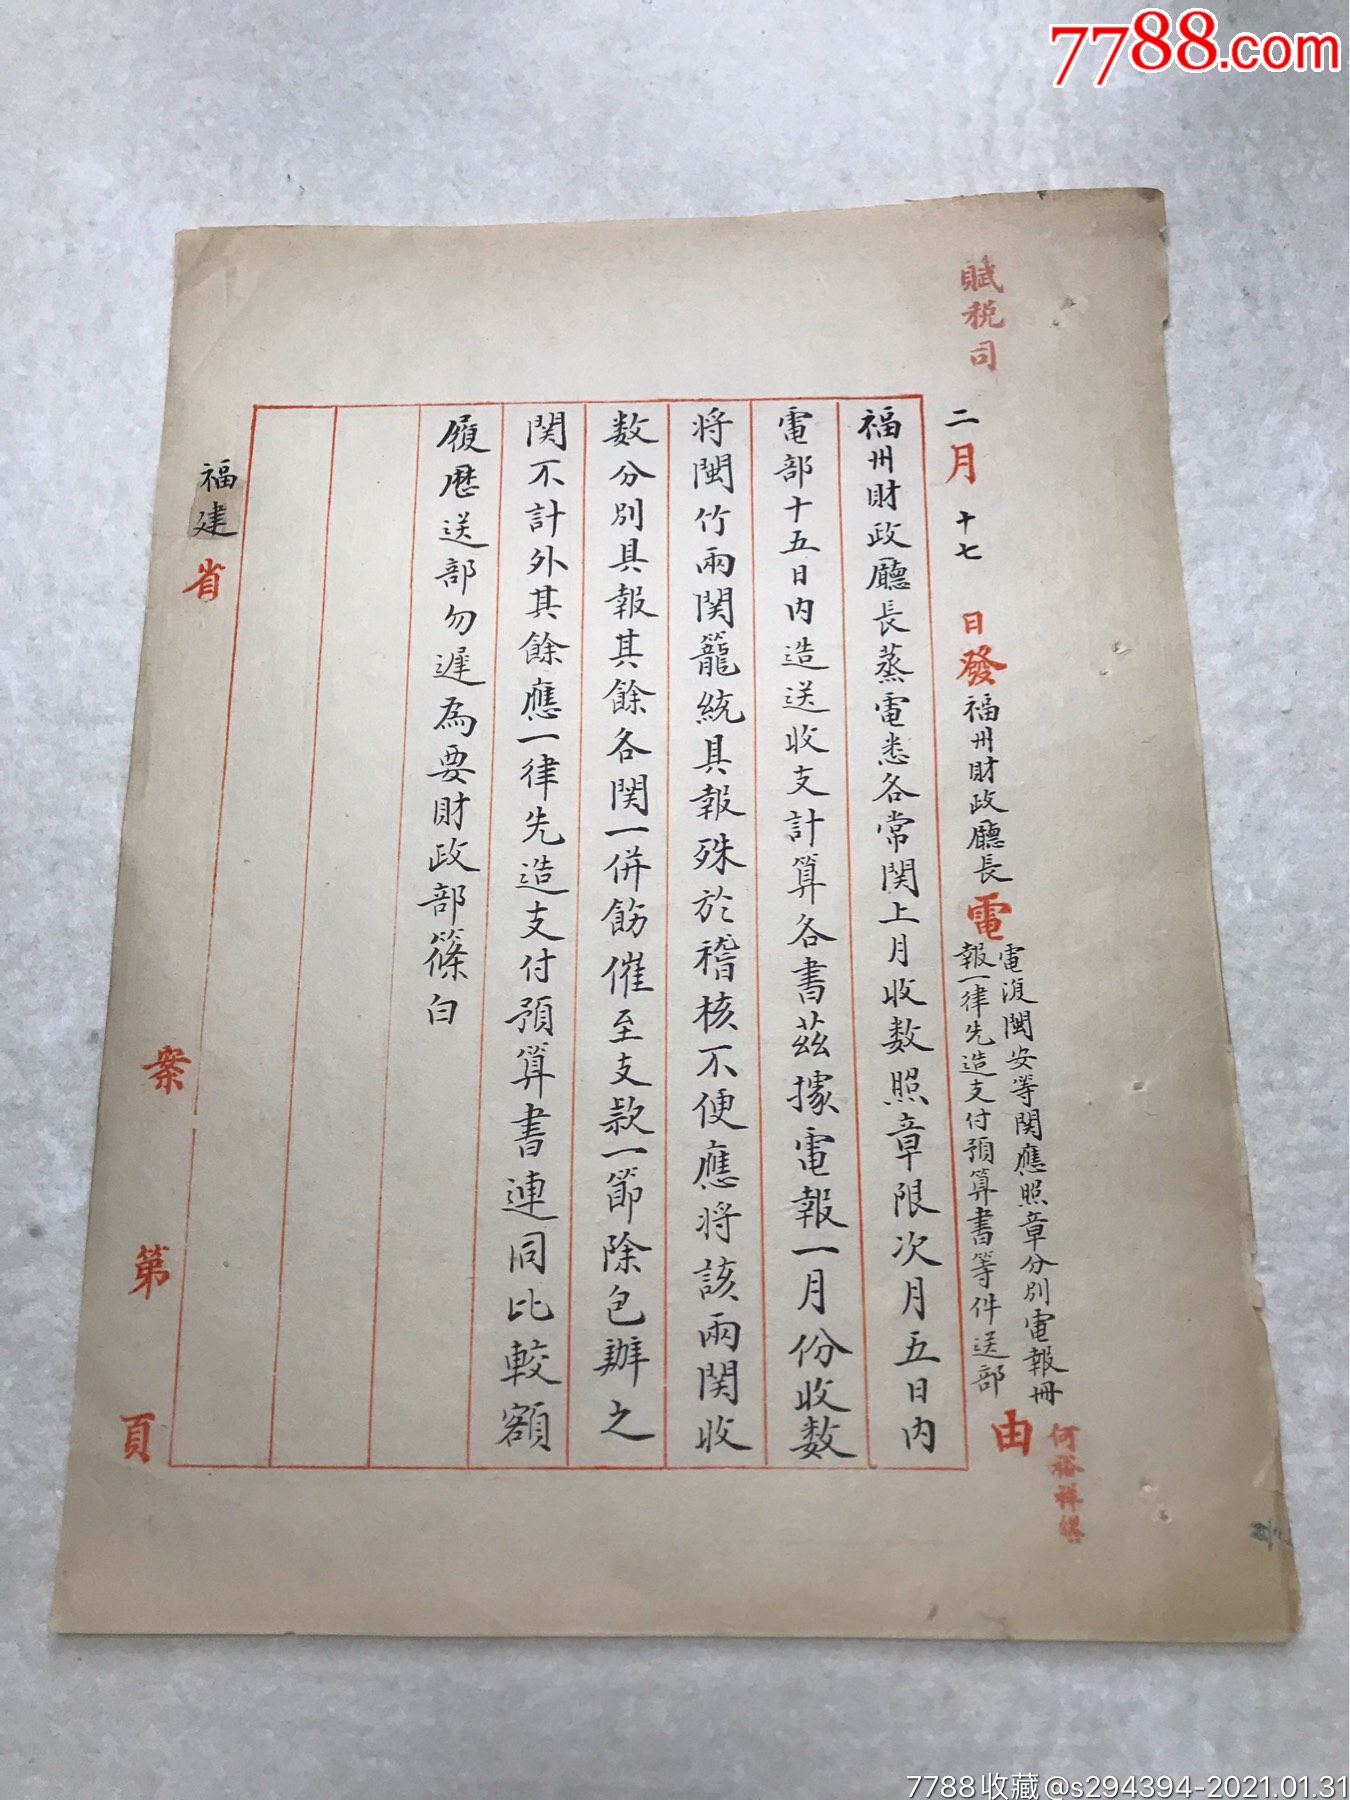 7788.com
賦稅司
二月十七日發福州財政廳長電
電復閩安等関應照章分別電報冊
報一律先造支付預算書等件送部
由
何裕祥繕
福州財政廳長蒸電悉各常関上月收数照章限次月五日内
電部十五日内造送收支計算各書茲據電報一月份收数
将閩竹兩関籠統具報殊於稽核不便應将該兩関收
数分別具報其餘各関一併飭催至支款一節除包辦之
関不計外其餘應一律先造支付預算書連同比較額
履歷送部勿遲為要財政部篠白
福建省
案
第
頁
7788收藏@s294394-2021.01.31